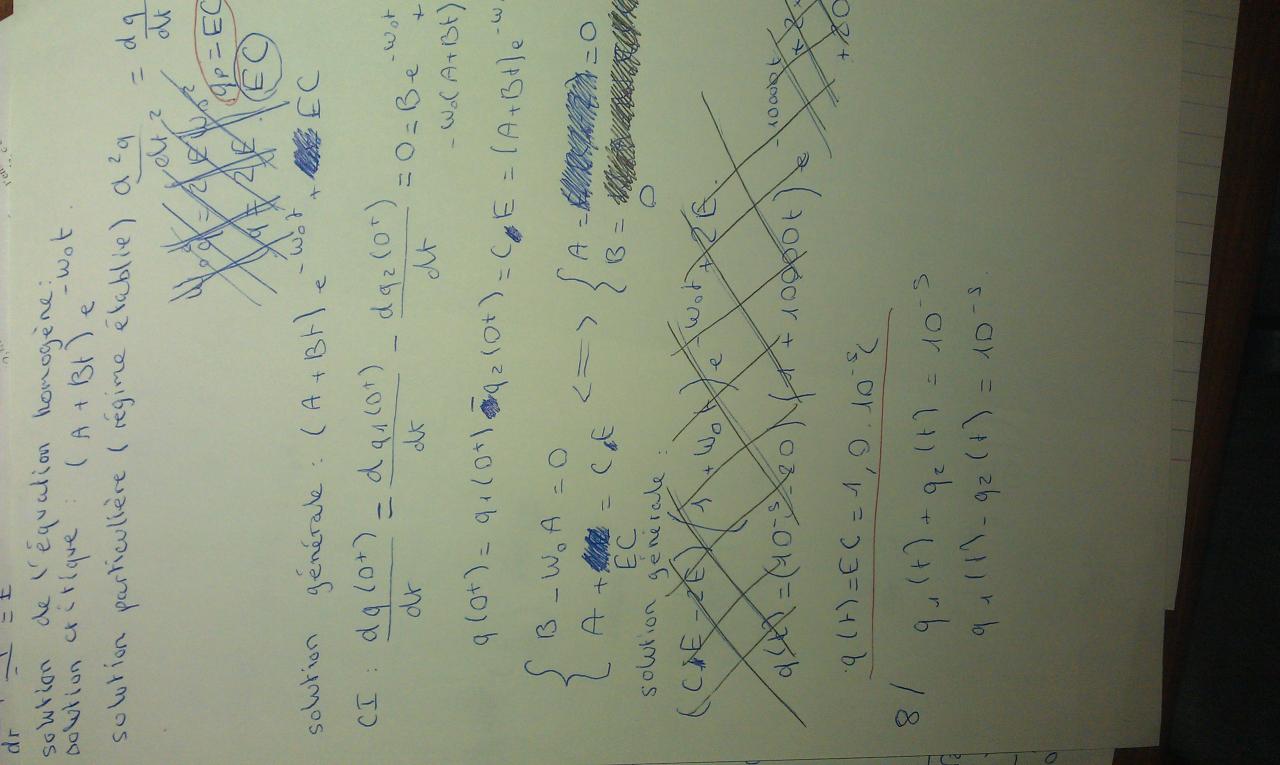 = E
solution de l'équation homogène:
solution critique : (A + Bt) e^-w₀t
solution particulière (régime établie) d²q/dt² = dq/dt
qp = EC
EC
solution générale : (A + Bt) e^-w₀t + EC
CI : dq(0+)/dt = dq1(0+)/dt - dq2(0+)/dt = 0 = B e^-w₀t +
-w₀(A+Bt)
q(0+) = q1(0+) - q2(0+) = C E = (A+Bt)e^-w₀
{ B - w₀A = 0
A + EC = C E <=> { A = 0
B = 0
solution générale :
(CE - 2E) (1 + w₀t) e^-w₀t + 2E.
q(t) = (10^-5 - 20) (1 + 10000t) e^-10000t + 20
q(t) = EC = 1,0.10^-5 C
8/
q1(t) + q2(t) = 10^-5
q1(t) - q2(t) = 10^-5.